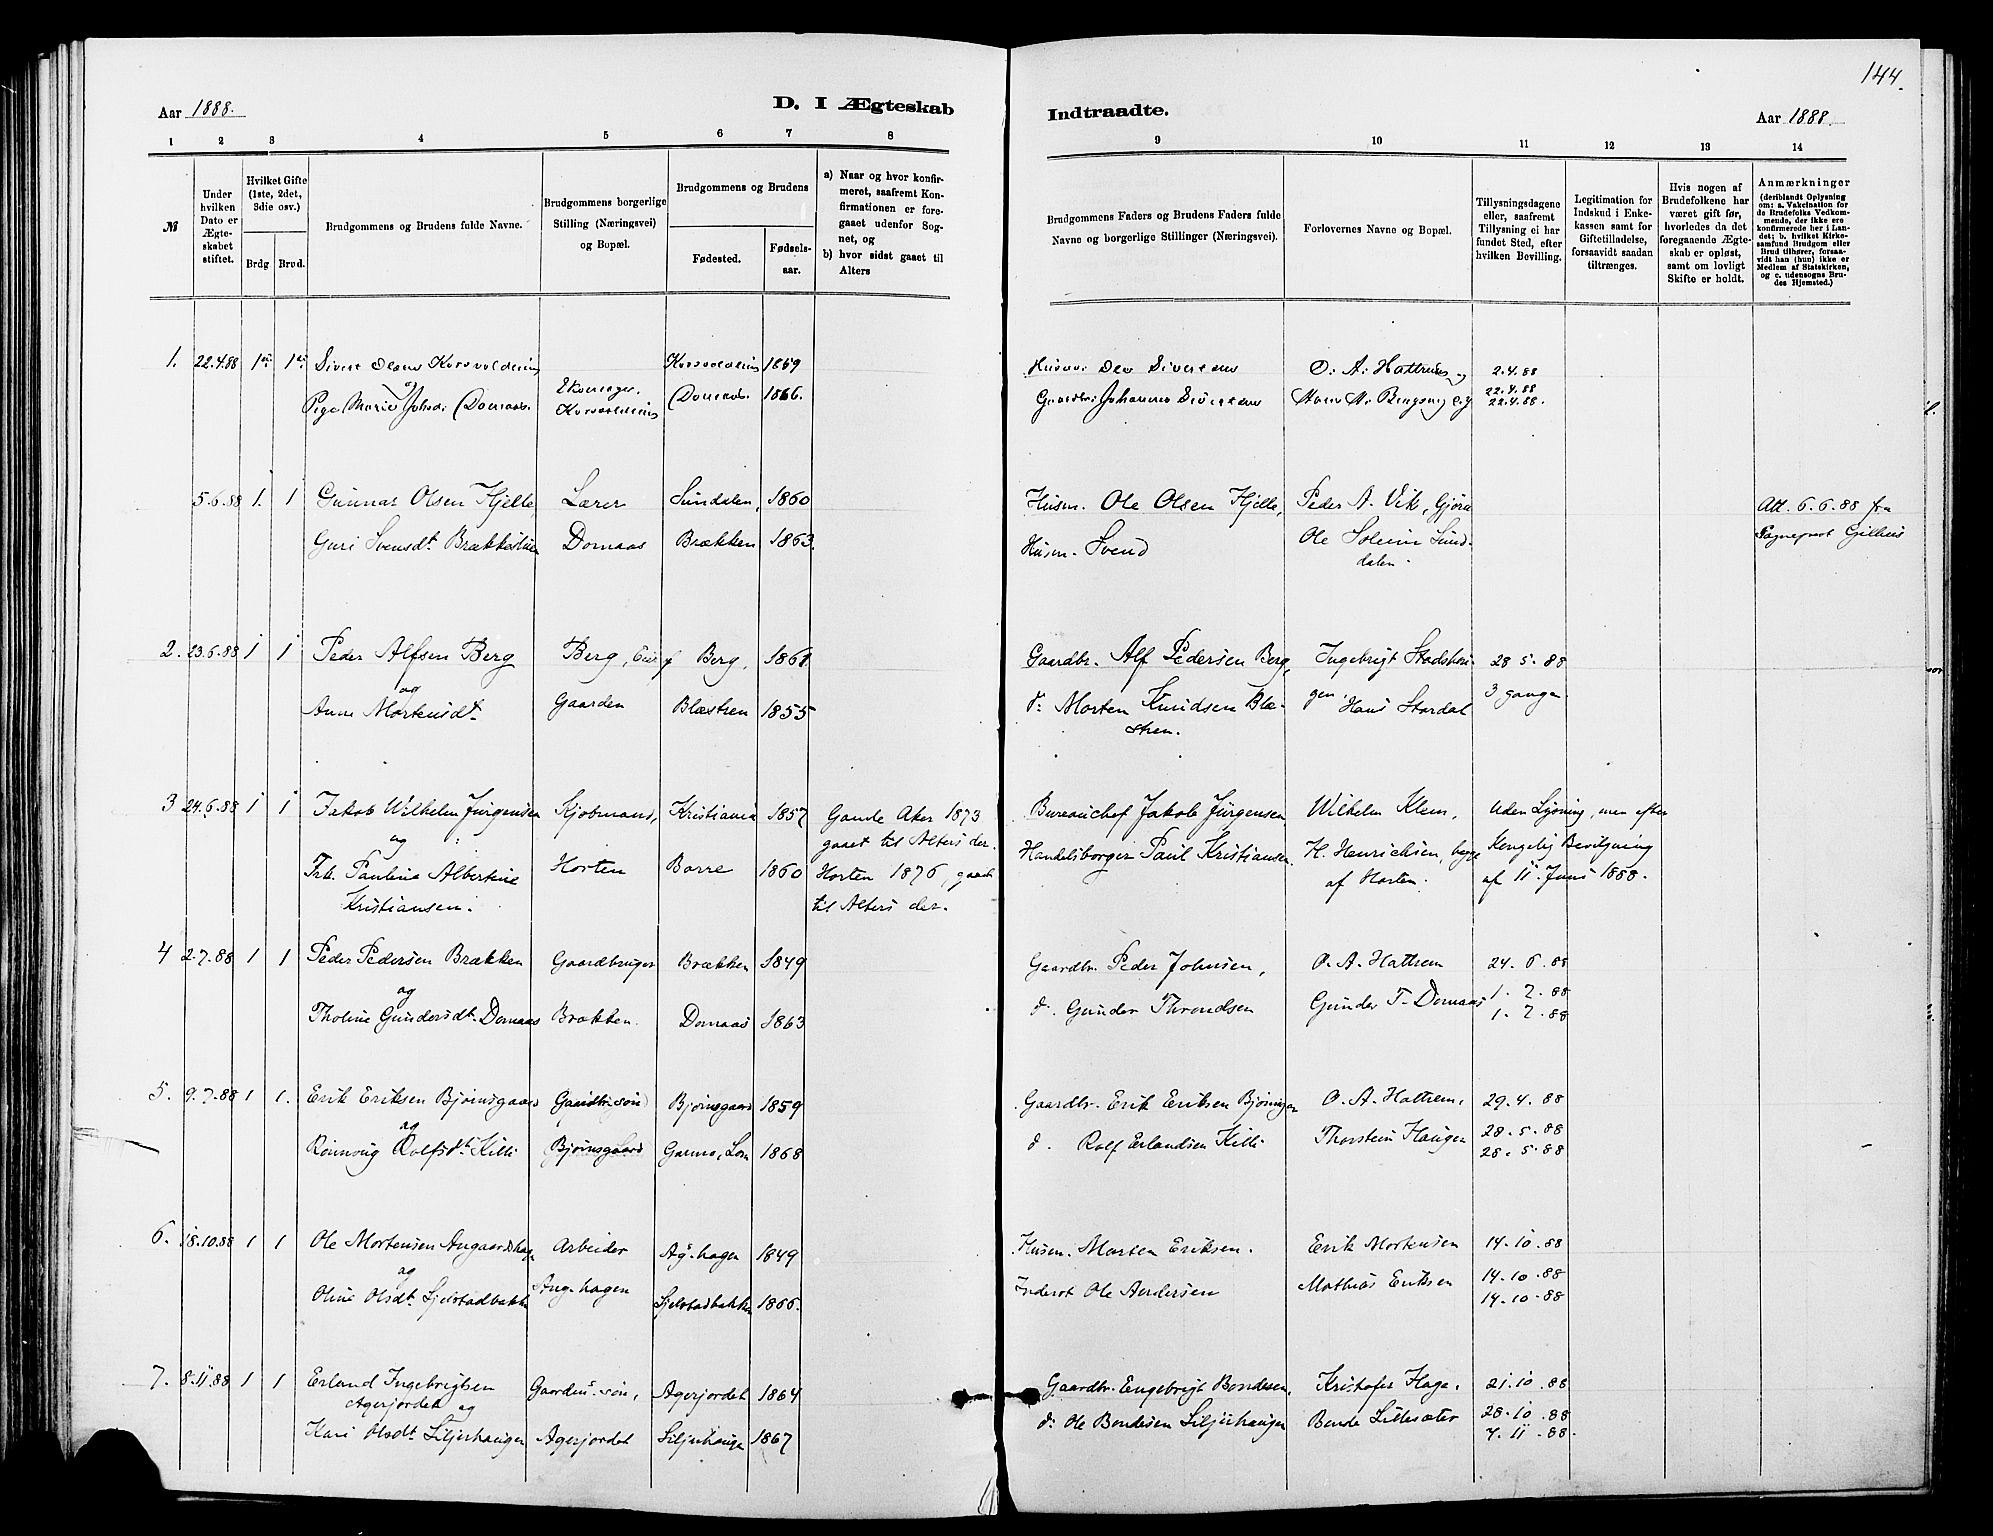 144.
Aar 1888.
D. I Ægteskab
Indtraadte.
Aar 1888.
1 2 3 4 5 6 7 8
9 10 11 12 13 14
№
Under hvilken Dato er Ægte-skabet stiftet.
Hvilket Gifte (1ste, 2det, 3die osv.)
Brdg Brud.
Brudgommens og Brudens fulde Navne.
Brudgommens borgerlige Stilling (Næringsvei) og Bopæl.
Brudgommens og Brudens
Fødested.
Fødsels-aar.
a) Naar og hvor konfir-meret, saafremt Kon-firmationen er fore-gaaet udenfor Sog-net, og
b) hvor sidst gaaet til Alters
Brudgommens Faders og Brudens Faders fulde Navne og borgerlige Stillinger (Næringsvei).
Forlovernes Navne og Bopæl.
Tillysningsdagene eller, saafremt Tillysning ei har fundet Sted, efter hvilken Bevilling.
Legitimation for Indskud i Enke-kassen samt for Giftetilladelse, forsaavidt saadan tiltrænges.
Hvis nogen af Brudefolkene har været gift før, hvorledes da det foregaaende Ægte-skab er opløst, samt om lovligt Skifte er holdt.
Anmærkninger
(deriblandt Oplysning om: a. Vakcination for de Brudefolks Vedkom-mende, der ikke ere konfirmerede her i Lan-det; b. hvilket Kirke-samfund Brudgom eller Brud tilhører, forsaa-vidt han (hun) ikke er Medlem af Statskirken, og c. udensogns Bru-des Hjemsted.)
1. 22.4.88 1 1 Sivert Olsens Korsvoldeiens Korsvoldeiens 1859 Husm. Ole Sivertsens O. A. Hattrem og 2.4.88
og
Marie Johsd. (Domaas. Korsvoldeiens (Domaas. 1866. Gaardbr. Johannes Sivertsens 22.4.88
22.4.88.
5.6.88 1. 1 Gunnar Olsen Hjelle Lærer Sundalen, 1860 Husm. Ole Olsen Hjelle, Peder A. Vik, Gjøra Att. 6.6.88 fra
Guri Svensdt. Brækkestuen Domaas Brækken 1863. Husm. Svend Ole Soleim Sund- Sogneprest Gilhus
dalen.
2. 23.6.88 1 1 Peder Alfsen Berg Berg, Eier af Berg, 1861 Gaardbr. Alf Pedersen Berg, Ingebrigt Stadshau- 28-5-88
og
Anne Mortensdt. Gaarden Blæstren 1855 d: Morten Knudsen Blæ- gen. Hans Stordal 3 gange.
stren.
3 24.6.88 1 1 Jakob Wilhelm Jürgensen Kjøbmand, Kristiania 1857 Gamle Aker 1873 Bureauchef Jakob Jürgensen Wilhelm Klem, Uden Lysning, men efter
og gaaet til Alters der.
Frk. Pauline Albertine Horten Borre 1860 Horten 1876, gaaet Handelsborger Paul Kristiansen. H. Henrichsen, begge Kongelig Bevilgning
Kristiansen. til Alters der. af Horten. af 11. Juni 1888.
4 2.7.88 1 1 Peder Pedersen Brækken Gaardbruger Brækken 1849 Gaardbr. Peder Johnsen, O. A. Hattrem 24.6.88
og
Tholine Gundersdt. Domaas Brækken. Domaas 1863 d. Gunder Throndsen Gunder T. Domaas 1.7.88
1.7.88
5. 9.7.88 1 1. Erik Eriksen Bjørnsgaard Gaardbr. søn Bjørnsgaard 1859 Gaardbr. Erik Eriksen Bjørnsgar O. A. Hattrem, 29.4.88
og
Rønnoug Rolfsdt. Killi Bjørnsgaard Garmo, Lom 1868 d. Rolf Erlandsen Killi Thorstein Haugen 28.5.88
28.5.88
6. 18.10.88 1 1 Ole Mortensen Angaardshage Arbeider Ag.hagen 1849 Husm. Morten Eriksen. Erik Mortensen 14.10.88
og
Oline Olsdt. Sjelstadbakke Ang.hagen Sjelstadbakken 1866. Inderst Ole Andersen Mathias Eriksen 14.10.88
14.10.88
7. 8.11.88 1 1 Erland Ingebrigtsen Gaardm. søn, Agerjordet 1864 Gaardbr. Engebrigt Bondesen, Kristofer Hage. 21.10.88
Agerjordet og
Kari Olsdt. Siljerhaugen Agerjordet Siljerhaugen 1867 d: Ole Bondesen Siljerhaugen Bonde Lillesæter 28.10.88
7.11.88.